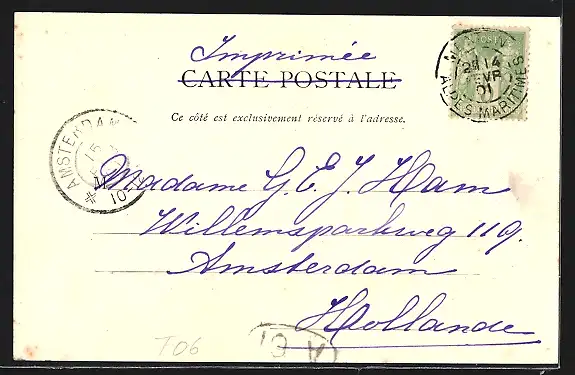 Imprimée
CARTE POSTALE
Ce côté est exclusivement réservé à l'adresse.
ALPES MARITIMES
14
01
AMSTERDAM
15
Madame G. E. J. Ham
Willemsparkweg 119.
Amsterdam
Hollande
T06